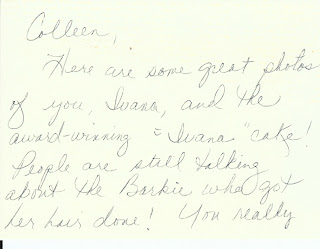 Colleen,
Here are some great photos
of you, Ivana, and the
award-winning "Ivana" cake!
People are still talking
about the Barkie who got
her hair done! You really